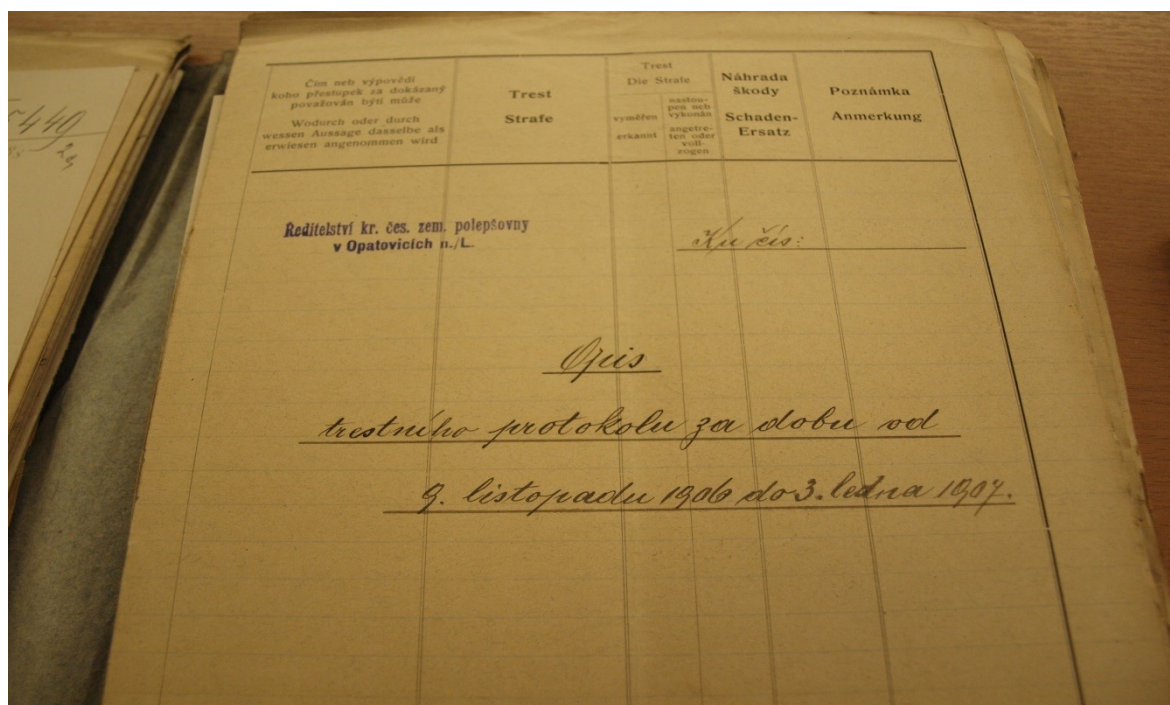 Čin neb výpověď
koho přestupek za dokázaný
považován býti může
Wodurch oder durch
wessen Aussage dasselbe als
erwiesen angenommen wird
Trest
Strafe
Trest
Die Strafe
vyměřen
erkannt
nastou-
pen neb
vykonán
angetre-
ten oder
voll-
zogen
Náhrada
škody
Schaden-
Ersatz
Poznámka
Anmerkung
Ředitelství kr. čes. zem. polepšovny
v Opatovicích n./L.
Ku čís:
Opis
trestního protokolu za dobu od
9. listopadu 1906 do 3. ledna 1907.